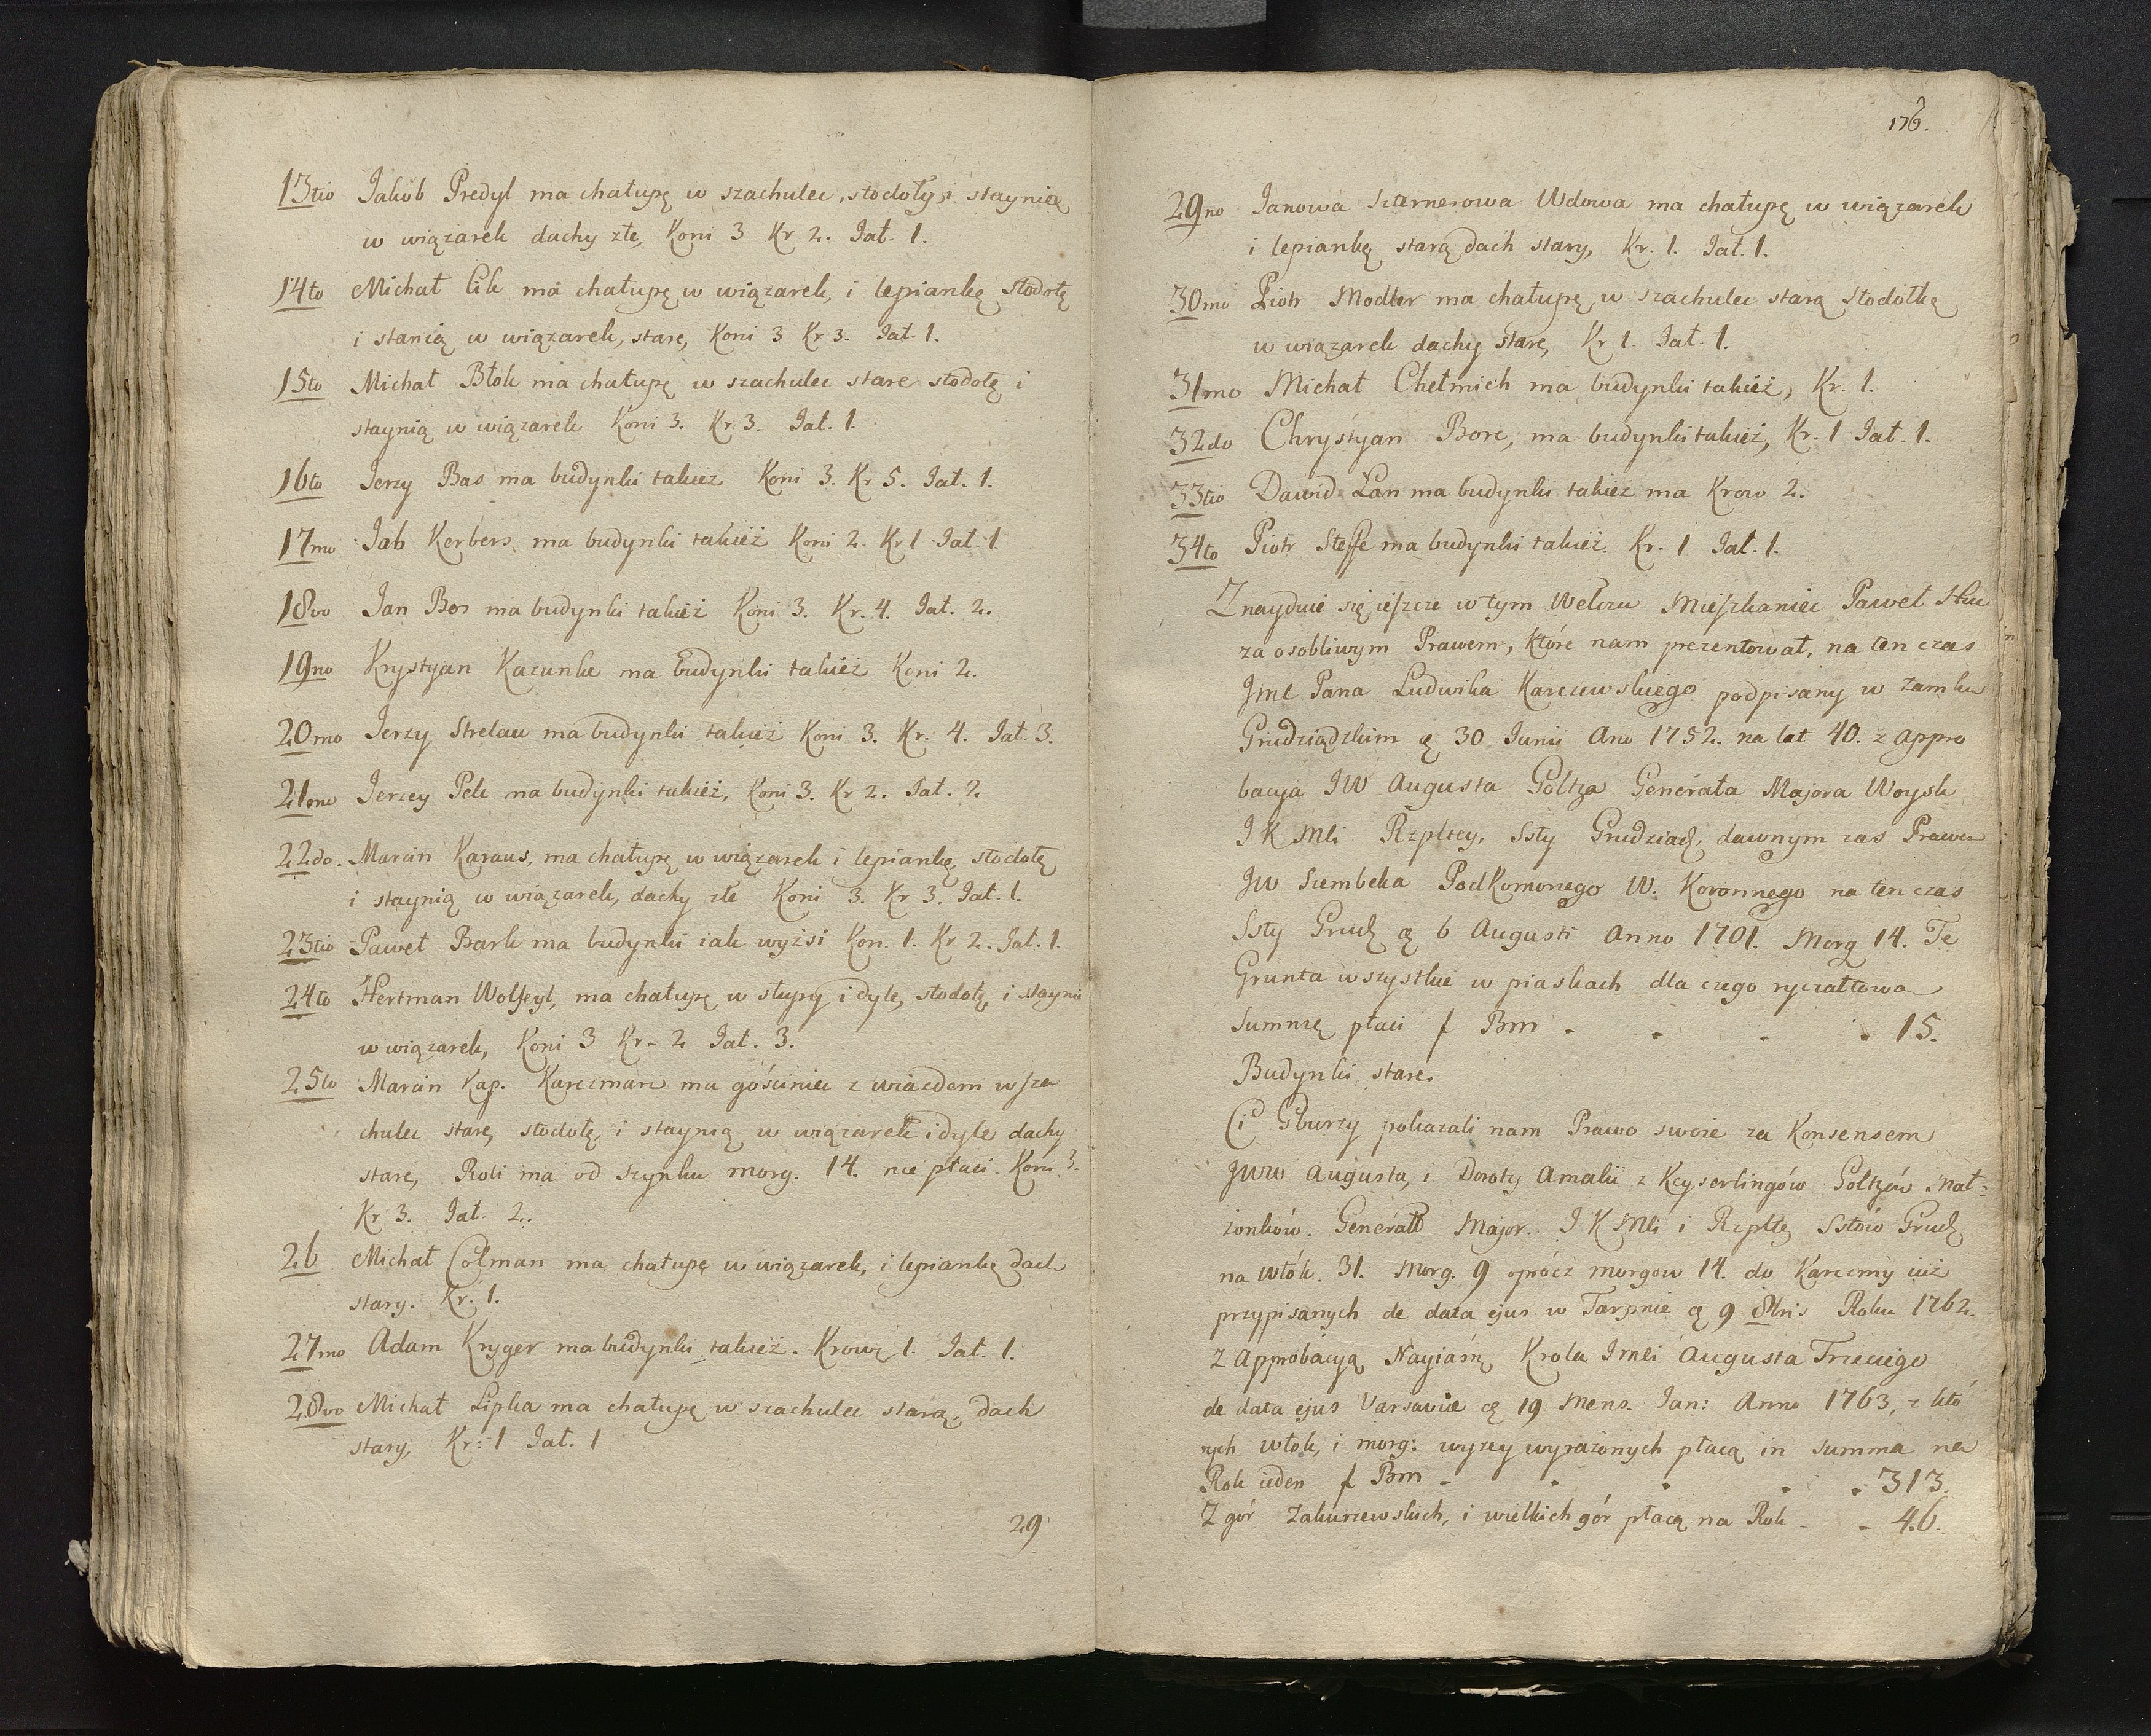 13tio Jakób Predyl ma chałupę w szachulec, stodoły, i staynię
w wiązarek dachy złe, Koni 3 Kr 2. Jał. 1.
14to Michał Cik ma chałupę w wiązarek, i lepiankę stodołę
i stanią w wiązarek, stare, Koni 3 Kr 3. Jał. 1.
15to Michał Błok ma chałupę w szachulec stare stodołę i
staynią w wiązarek Koni 3. Kr. 3. Jał. 1.
16to Jerzy Bas ma budynki takież Koni 3. Kr 5. Jał. 1.
17mo Jab Kerbers, ma budynki takież Koni 2. Kr 1 Jał. 1.
18vo Jan Bos ma budynki takież Koni 3. Kr. 4. Jał. 2.
19no Krystyan Kazunke ma budynki takież Koni 2.
20mo Jerzy Strelau ma budynki takież Koni 3. Kr. 4. Jał. 3.
21mo Jerzey Pek ma budynki takież, Koni 3. Kr 2. Jał. 2
22do. Marcin Karaus, ma chałupę w wiązarek i lepiankę, stodołę
i staynią w wiązarek, dachy złe Koni 3. Kr 3. Jał. 1.
23tio Paweł Bark ma budynki iak wyżsi Kon. 1. Kr 2. Jał. 1.
24to Hertman Wolfeyl, ma chałupę w słupy i dyle, stodołę, i staynię
w wiązarek, Koni 3 Kr. 2 Jał. 3.
25to Marcin Kap. Karczmarz ma gościniec z wiazdem w sza
chulec stare, stodołę, i staynią w wiązarek i dyle dachy
stare, Roli ma od szynku morg. 14. nie płaci. Koni 3.
Kr 3. Jał. 2.
26 Michał Colman ma chałupę w wiązarek, i lepiankę dach
stary. Kr. 1.
27mo Adam Kryger ma budynki takież. Krowę 1. Jał. 1.
28vo Michał Lipka ma chałupę w szachulec starą, dach
stary, Kr: 1 Jał. 1
29
176.
29no Janowa Szternerowa Wdowa ma chałupę w wiązarek
i lepiankę starą dach stary, Kr. 1. Jał. 1.
30mo Piotr Modler ma chałupę w szachulec starą stodołkę
w wiązarek dachy stare, Kr 1. Jał. 1.
31mo Michał Chełmich ma budynki takież, Kr. 1.
32do Chrystyan Borc, ma budynki takież, Kr. 1 Jał. 1.
33tio Dawid Lan ma budynki takież ma Krow 2.
34to Piotr Steffe ma budynki takież. Kr. 1 Jał. 1.
Znayduie się ieszcze w tym Mieszkaniec Paweł
za osobliwym Prawem, które nam prezentował, na ten czas
Jmć Pana Ludwika Karczewskiego podpisany w Zamku
Grudziądzkim 30 Junii Ano 1752. na lat 40. z appro
bacya JW Augusta Goltza Generała Majora Woysk
J K Mći Rzpltey, Ssty Grudziądz. dawnym zas Prawem
JW Szembeka PodKomonego W. Koronnego na ten czas
Ssty Grudz 6 Augusti Anno 1701. Morg 14. Te
Grunta wszystkie w piaskach dla czego ryczałtowa
Summę płaci f Bm . . . . 15.
Budynki stare.
Ci Gburzy pokazali nam Prawo swoie za Konsensem
JWW Augusta, i Doroty Amalii z Keyserlingów Goltzów Mał=
żonków. Generałł Major. J K Mći i Rzplte, Sstów Grudz
na włók. 31. Morg. 9 oprócz morgow 14. do Karczmy iuż
przypisanych de data ejus w Tarpnie 9 8bris Roku 1762.
z Approbacyą Nayiaśn Krola Jmći Augusta Trzeciego
de data ejus Varsavie 19 Mens. Jan: Anno 1763, z któ
rych włók, i morg: wyżey wyrażonych płacą in summa na
Rok ieden f Bm . . . . . 313.
Z gór Zakurzewskich, i wielkich gór płacą na Rok . . 46.